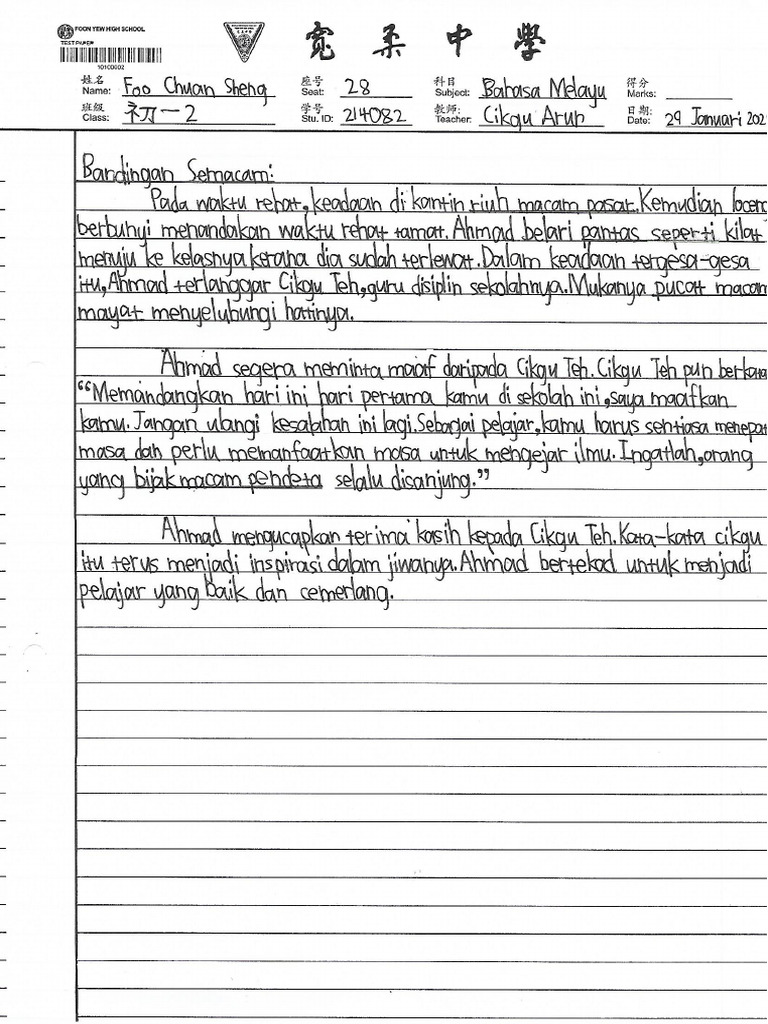 FOON YEW HIGH SCHOOL
TEST PAPER
10100002
寬柔中學
姓名 Name: Foo Chuan Sheng 座号 Seat: 28 科目 Subject: Bahasa Melayu 得分 Marks:
班级 Class: 初一2 学号 Stu. ID: 214082 教师: Teacher: Cikgu Arun 日期: Date: 29 Januari 202
Bandingan Semacam:
Pada waktu rehat, keadaan di kantin riuh macam pasar. Kemudian locen
berbunyi menandakan waktu rehat tamat. Ahmad belari pantas seperti kilat
menuju ke kelasnya kerana dia sudah terlewat. Dalam keadaan tergesa-gesa
itu, Ahmad terlanggar Cikgu Teh, guru disiplin sekolahnya. Mukanya pucat macam
mayat menyelubungi hatinya.
Ahmad segera meminta maaf daripada Cikgu Teh. Cikgu Teh pun berkata
“Memandangkan hari ini hari pertama kamu di sekolah ini, saya maafkan
kamu. Jangan ulangi kesalahan ini lagi. Sebagai pelajar, kamu harus sentiasa menepat
masa dan perlu memanfaatkan masa untuk mengejar ilmu. Ingatlah, orang
yang bijak macam pendeta selalu disanjung.”
Ahmad mengucapkan terima kasih kepada Cikgu Teh. Kata-kata cikgu
itu terus menjadi inspirasi dalam jiwanya. Ahmad bertekad untuk menjadi
pelajar yang baik dan cemerlang.